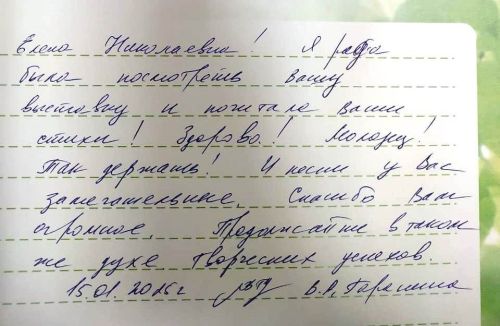 Елена Николаевна! Я рада
была посмотреть Вашу
выставку и почитала Ваши
стихи! Здорово! Молодец!
Так держать! И песни у Вас
замечательные. Спасибо Вам
огромное. Продолжайте в таком
же духе. Творческих успехов.
15.01. г В.Р.